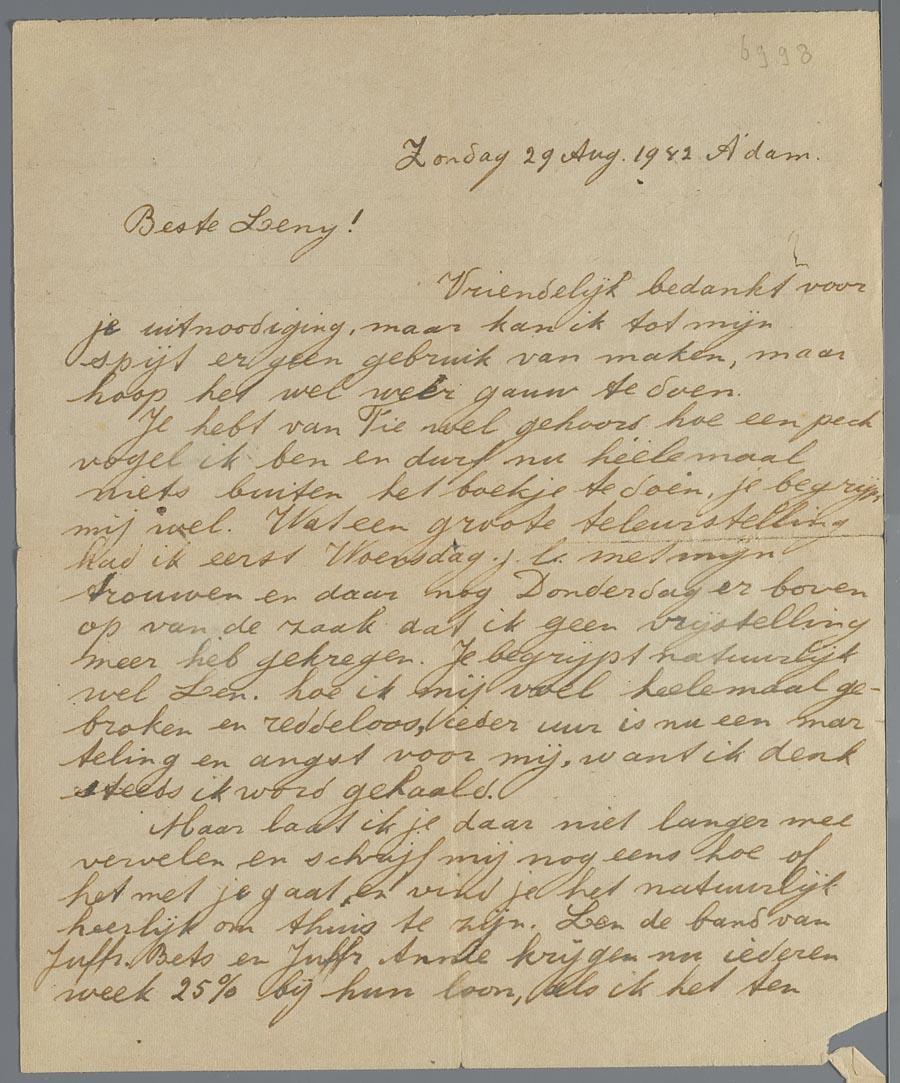 6998
Zondag 29 Aug. 1942 A'dam.
Beste Leny!
Vriendelijk bedankt voor
je uitnoodiging, maar kan ik tot mijn
spijt er geen gebruik van maken, maar
hoop het wel weer gauw te doen.
Je hebt van Tie wel gehoord hoe een pech
vogel ik ben en durf nu heelemaal
niets buiten het boekje te doen, je begrijp
mij wel. Wat een groote teleurstelling
had ik eerst Woensdag j.l. met mijn
trouwen en daar nog Donderdag er boven
op van de zaak dat ik geen vrijstelling
meer heb gekregen. Je begrijpt natuurlijk
wel Len. hoe ik mij voel heelemaal ge-
broken en reddeloos, ieder uur is nu een mar-
teling en angst voor mij, want ik denk
steeds ik word gehaald.
Maar laat ik je daar niet langer mee
vervelen en schrijf mij nog eens hoe of
het met je gaat, en vind je het natuurlijk
heerlijk om thuis te zijn. Len de band van
Juffr. Bets en Juffr Annie krijgen nu iederen
week 25% bij hun loon, als ik het ten